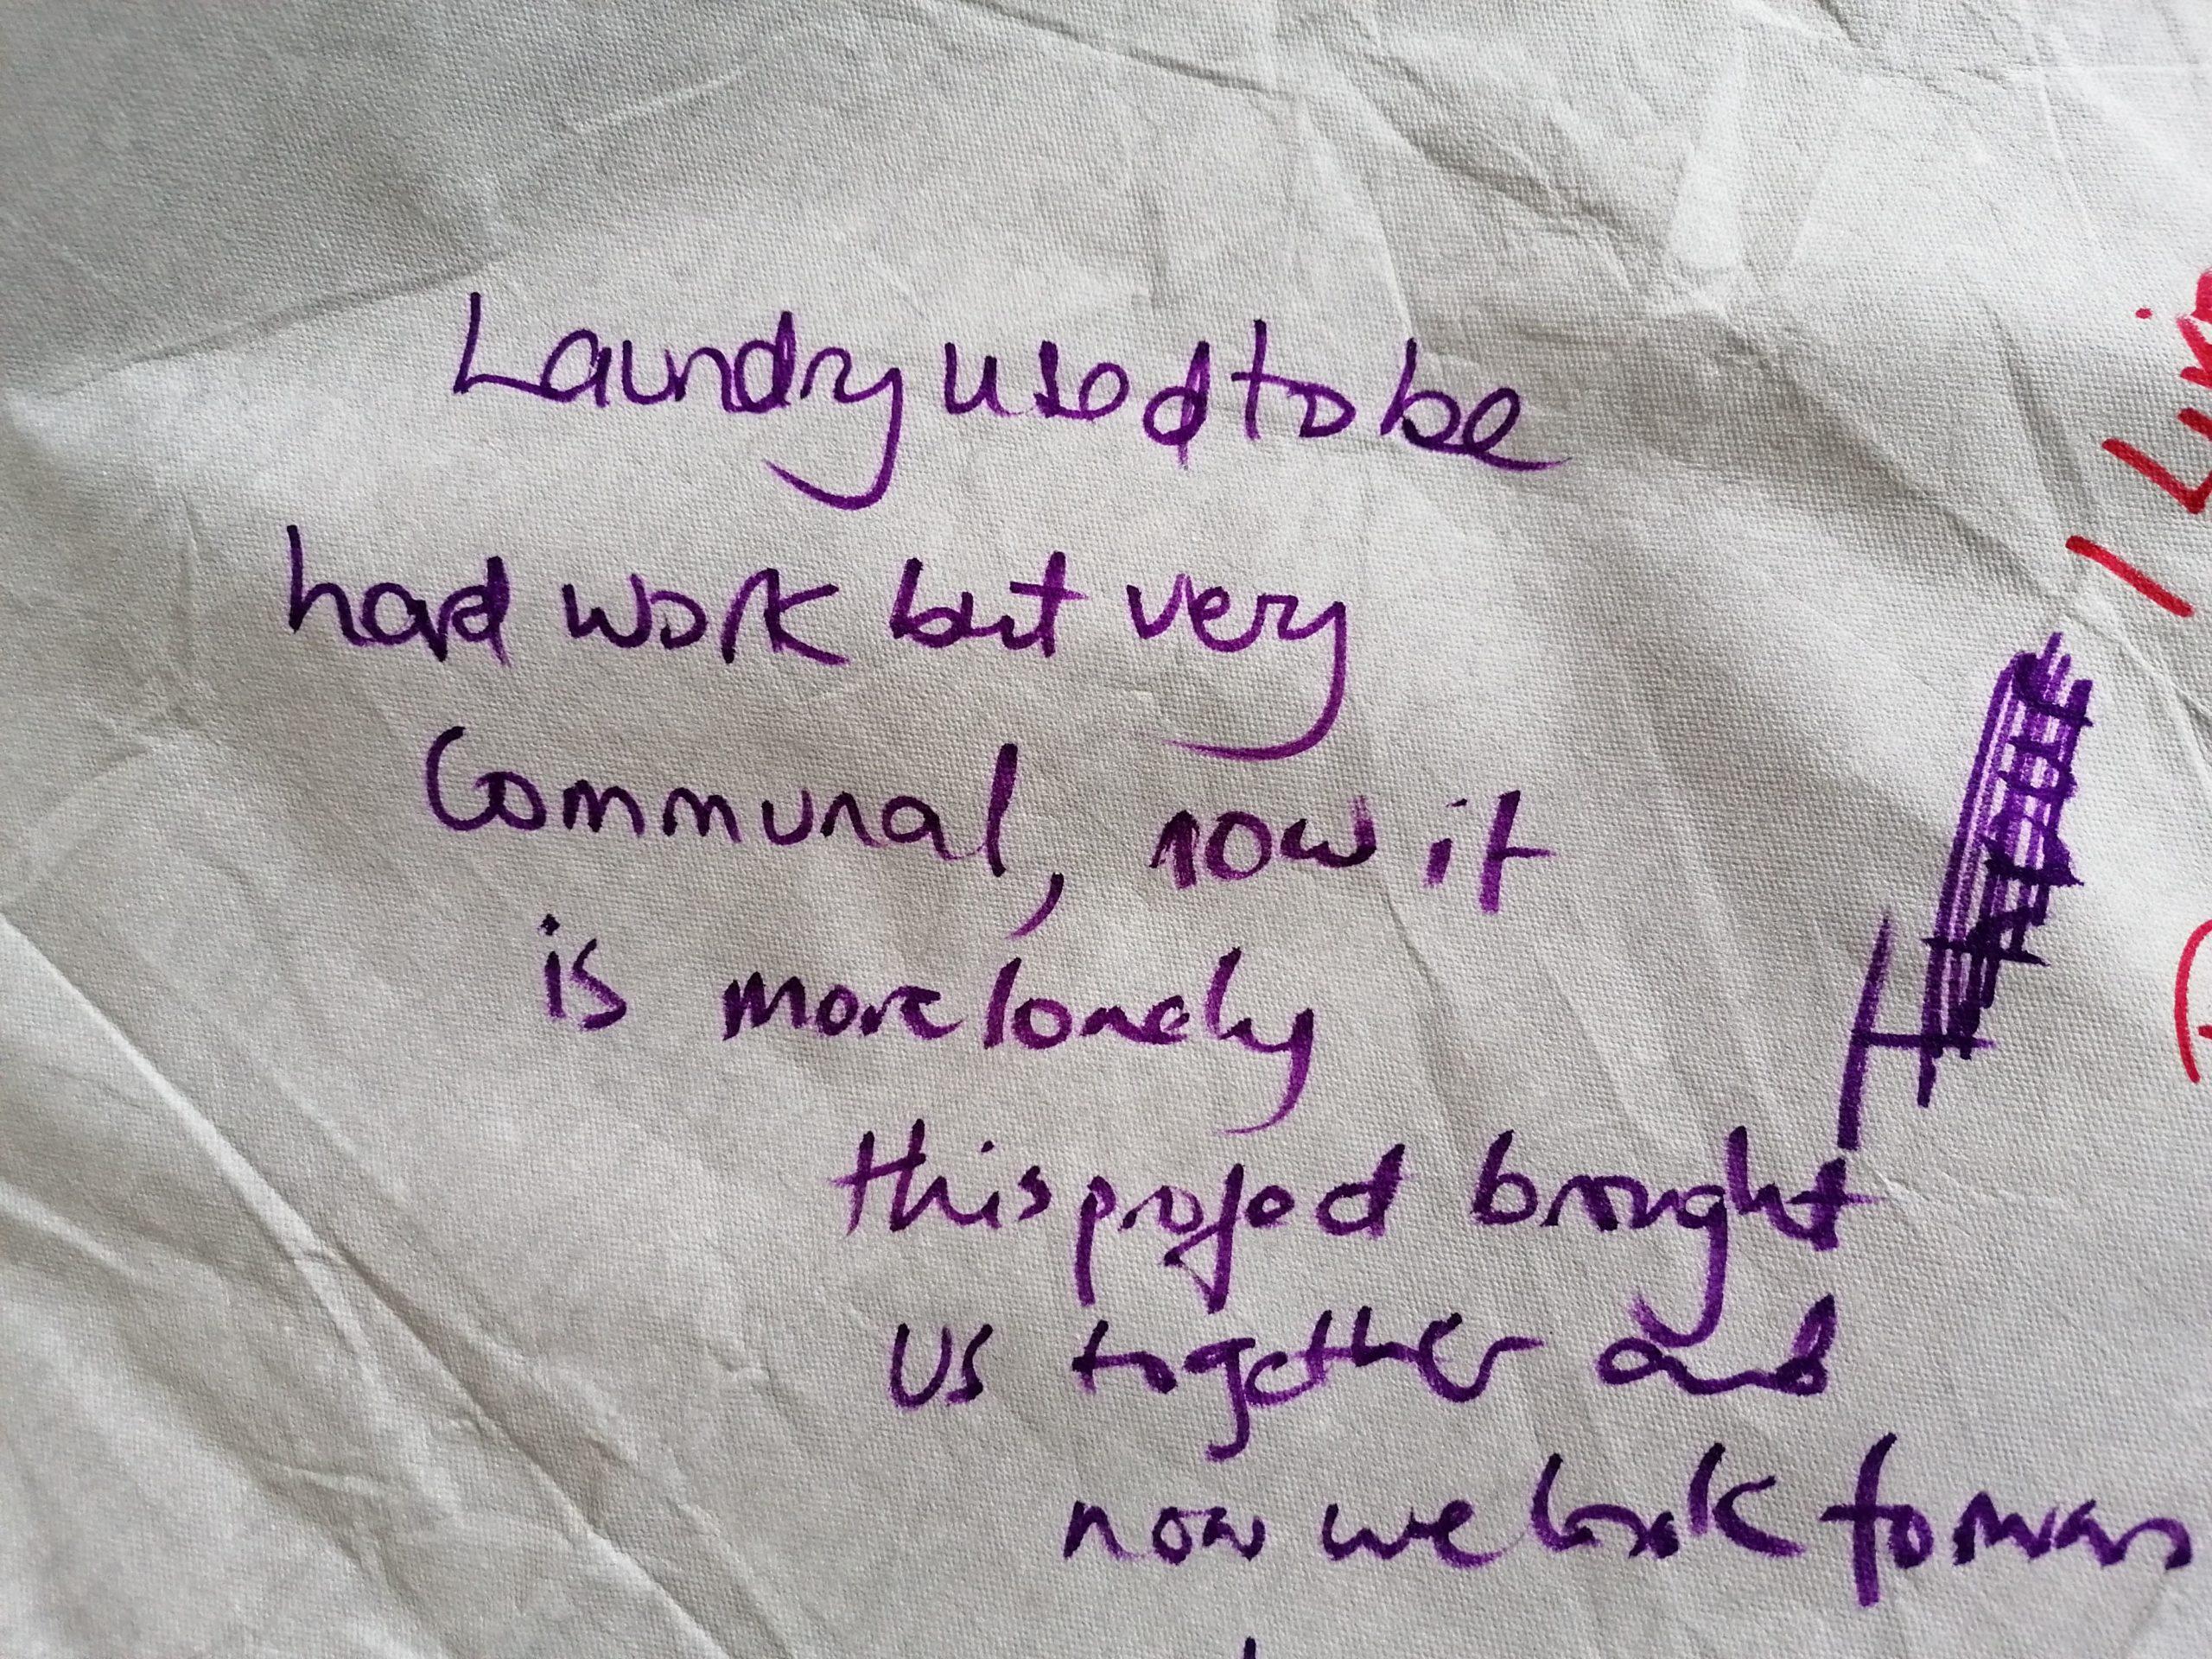 Laundry used to be
hard work but very
Communal, now it
is more lonely
this project brought
us together and
now we look